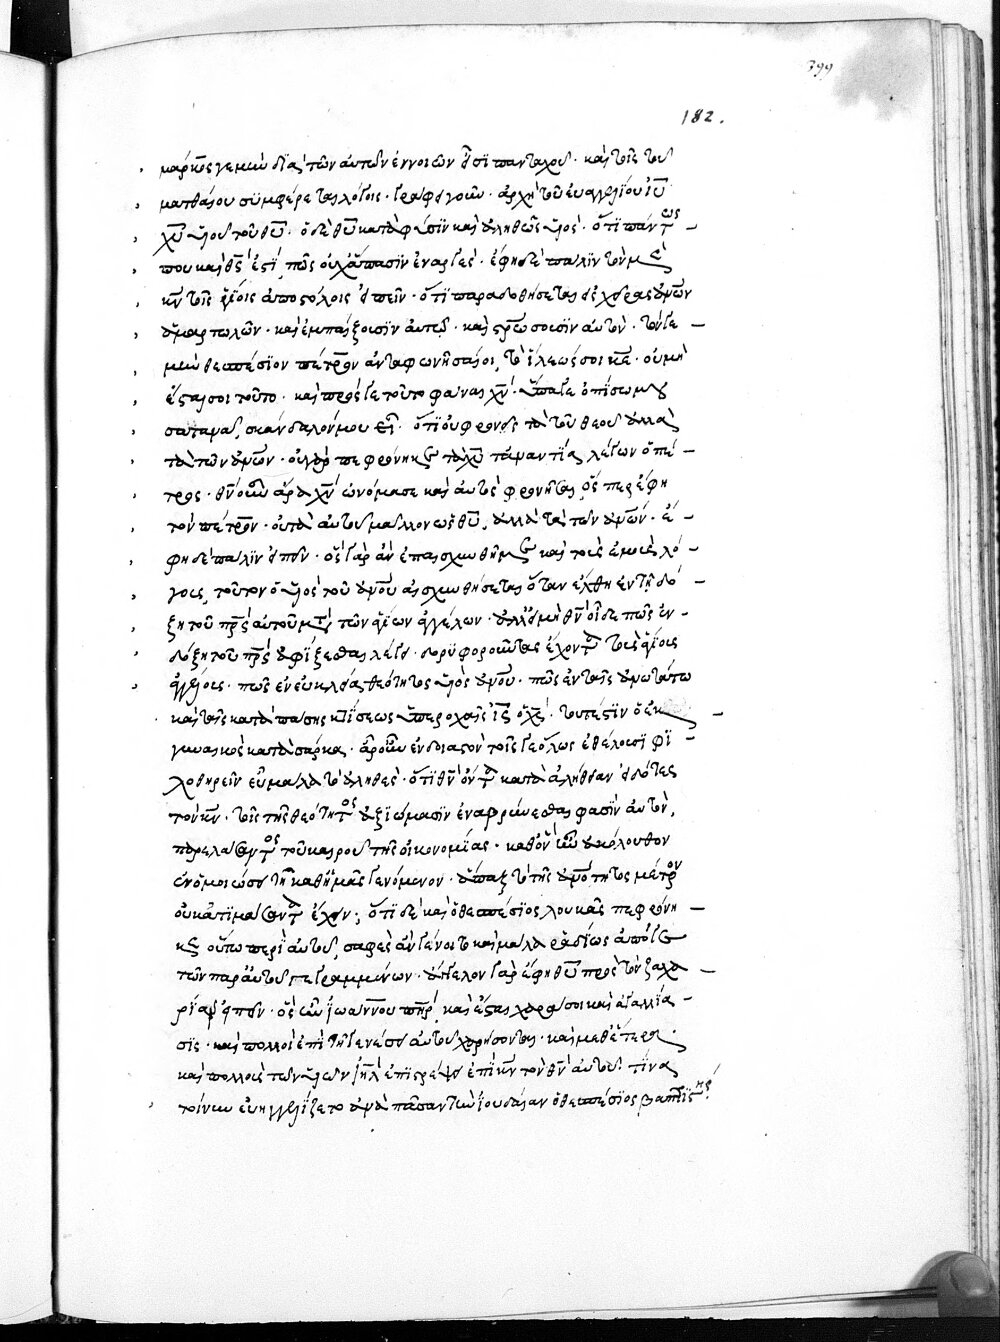 399
182.
μάρκος γεμὴν διὰ τῶν αὐτῶν ἐννοιῶν εἶσι πανταχοῦ. καὶ τοῖς τοῦ
ματθαίου συμφέρεται λόγοις. γράφει γοῦν. ἀρχὴ τοῦ εὐαγγελίου ιυ
χυ υἱοῦ τοῦ θυ. ὁ δὲ θυ κατὰ φύσιν καὶ ἀληθῶς υἱὸς. ὅτι πάντως
που καὶ θς ἐστὶ, πῶς οὐχ ἅπασιν ἐναργὲς. ἔφη δὲ πάλιν τὸν
κν τοῖς ἁγίοις ἀποστόλοις εἰπεῖν. ὅτι παραδοθήσεται εἰς χεῖρας ἀνων
ἁμαρτωλῶν. καὶ ἐμπαίξουσιν αὐτῷ. καὶ σρώσουσιν αὐτὸν. τόν γε
μὴν θεσπέσιον πέτρον ἀνταφωνῆσαί οἱ, τὸ ἵλεώς σοι κε. οὐ μὴ
ἔσται σοι τοῦτο. καὶ πρός γε τοῦτο φάναι χν. ὕπαγε ὀπίσω μου
σατανᾶ, σκάνδαλόν μου εἶ. ὅτι οὐ φρονεῖς τὰ τοῦ θεοῦ ἀλλὰ
τὰ τῶν ἀνων. οὐκοῦν πεφρόνηκε τὰ χυ τἀναντία λέγων ὁ πέ
τρος. θν οὖν ἄρα χν ὠνόμασε καὶ αὐτὸς φρονῆσαι, ὅς περ ἔφη
τὸν πέτρον. οὐ τὰ αὐτοῦ μᾶλλον ὡς θυ, ἀλλὰ τὰ τῶν ἀνων. ἔ
φη δὲ πάλιν εἰπεῖν. ὃς γὰρ ἂν ἐπαισχυνθῇ με καὶ τοὺς ἐμοὺς λό
γους, τοῦτον ὁ υἱὸς τοῦ ἀνου αἰσχυνθήσεται ὅταν ἔλθῃ ἐν τῇ δό
ξῃ τοῦ πρς αὐτοῦ μετὰ τῶν ἁγίων ἀγγέλων. ἀλλ' εἰ μὴ θν οἶδε πῶς ἐν
δόξῃ τοῦ πρς ἀφίξεσθαι λέγει. δορυφοροῦντας ἔχοντα τοὺς ἁγίους
ἀγγέλους. πῶς ἐν εὐκλείᾳ θεότητος υἱὸς ἀνου. πῶς ἐν ταῖς ἀνωτάτω
καὶ ταῖς κατὰ πάσης κτίσεως ὑπεροχαῖς τουτέστιν ὁ ἐκ
γυναικὸς κατὰ σάρκα. ἆρ' οὖν ἐνδοιαστὸν τοῖς γε ὅλως ἐθέλουσι φι
λοθηρεῖν εὖ μάλα τὸ ἀληθὲς. ὅτι θν ὄντα κατὰ ἀλήθειαν εἰδότες
τὸν κν. τοῖς τῆς θεότητος ἀξιώμασιν ἐναβρύνεσθαι φασὶν αὐτὸν,
παρελάσαντος τοῦ καιροῦ τῆς οἰκονομίας. καθ' ὃν ἦν ἀκόλουθον
ἐν ὁμοιώσει τῇ καθ' ἡμᾶς γενόμενον. ἅπαξ τὸ τῆς ἀνότητος μέτρον
οὐκ ἀτιμάσαντα ἔχειν; ὅτι δὲ καὶ ὁ θεσπέσιος λουκᾶς πεφρόνη
κε οὕτω περὶ αὐτοῦ, σαφὲς ἂν γένοιτο καὶ μάλα ῥᾳδίως ἀπό γε
τῶν παρ' αὐτοῦ γεγραμμένων. ἄγγελον γὰρ ἔφη θυ πρὸς τὸν ζαχα
ρίαν εἰπεῖν. ὃς ἦν ἰωάννου πηρ, καὶ ἔσται χαρά σοι καὶ ἀγαλλία
σις. καὶ πολλοὶ ἐπὶ τῇ γενέσει αὐτοῦ χαρήσονται. καὶ μεθ' ἕτερα.
καὶ πολλοὺς τῶν υἱῶν ιηλ ἐπιστρέψει ἐπὶ κν τὸν θν αὐτῶν. τίνα
τοίνυν εὐηγγελίζετο ἀνὰ πᾶσαν τὴν ἰουδαίαν ὁ θεσπέσιος βαπτιστής;